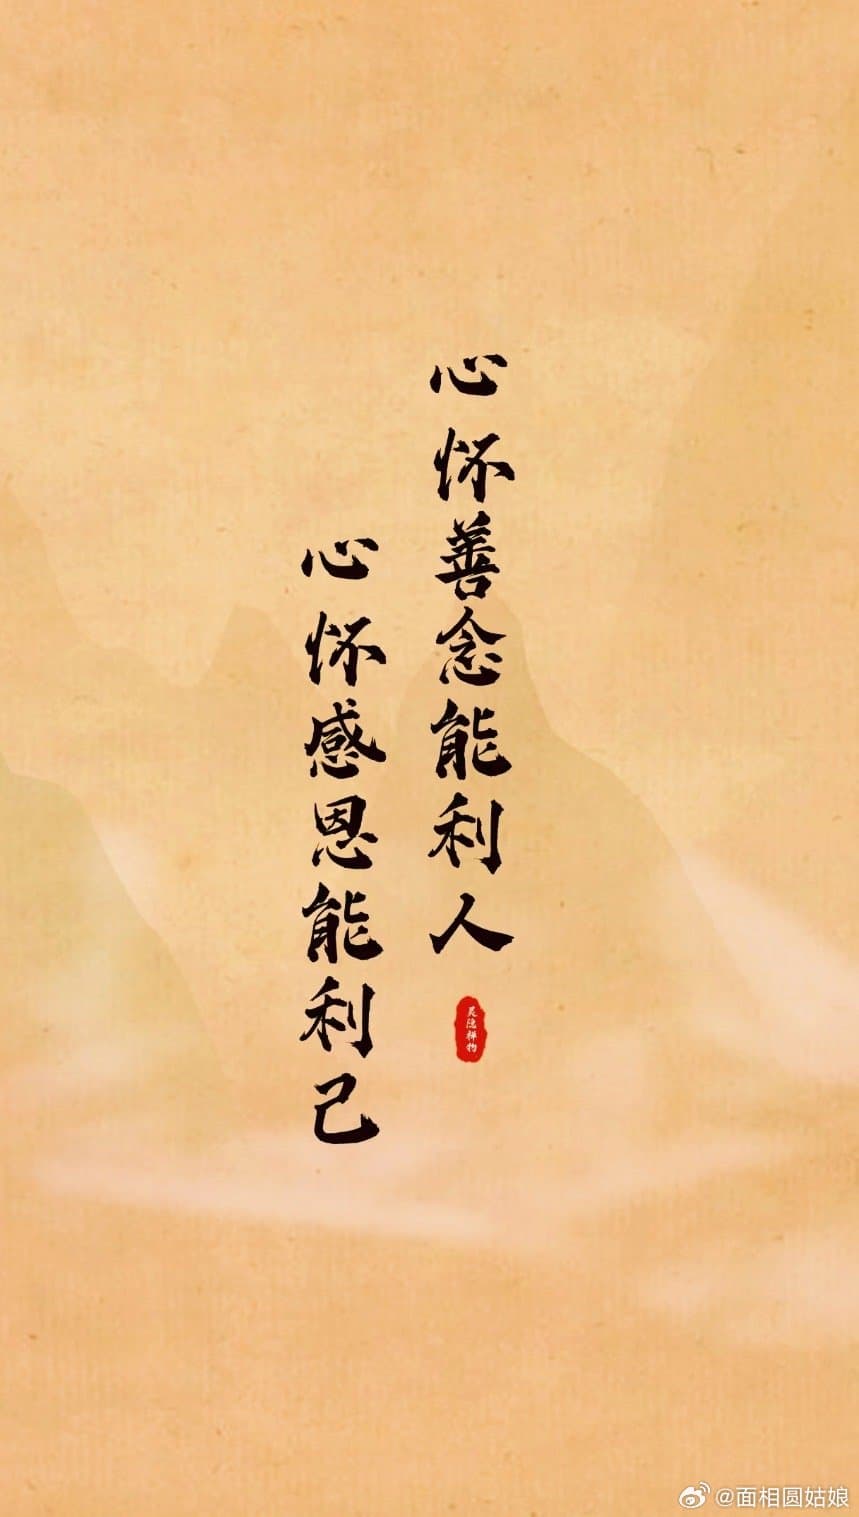 心怀善念能利人
心怀感恩能利己
灵隐禅物
@面相圆姑娘